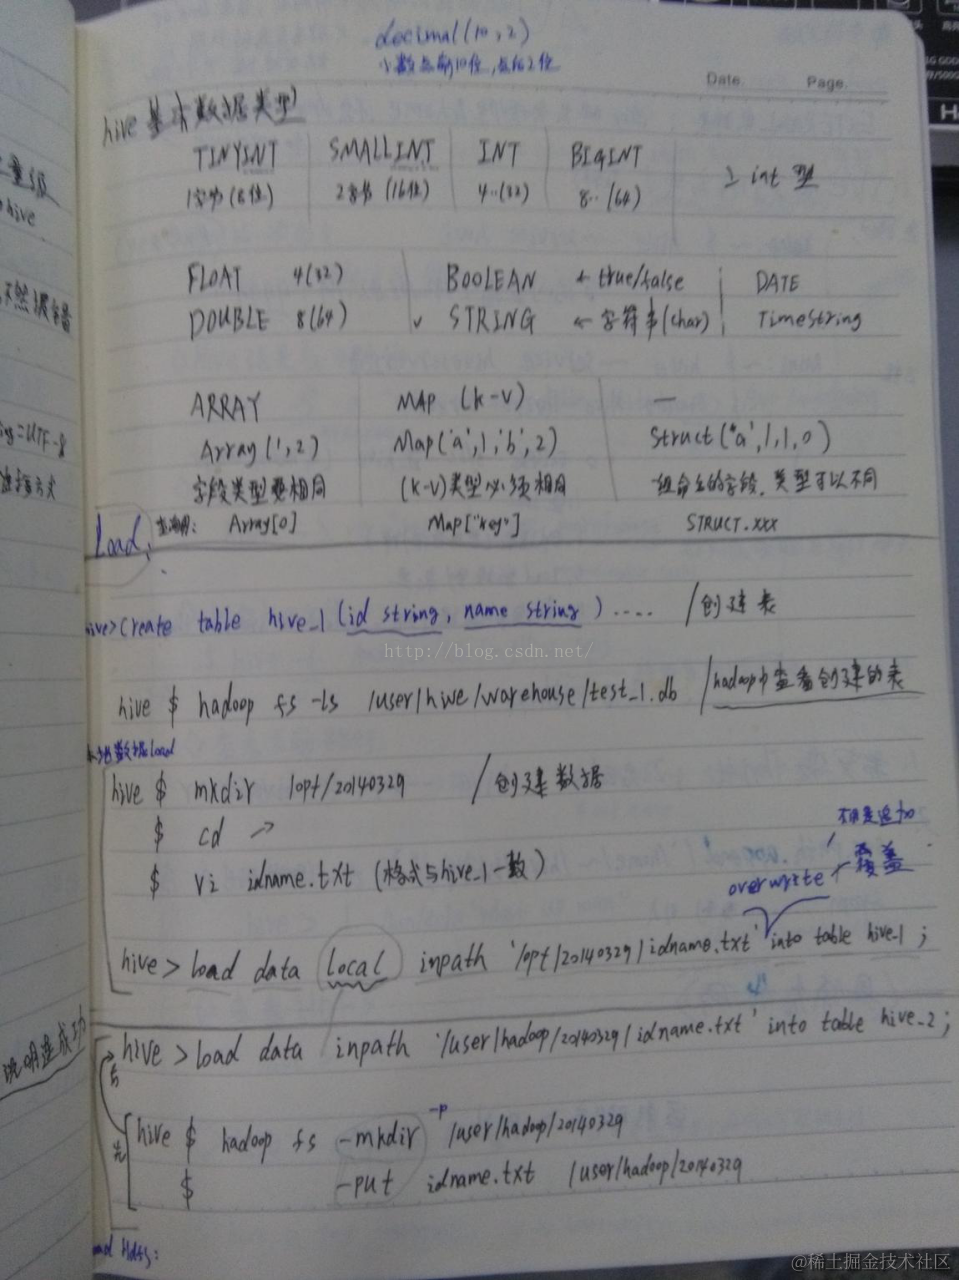 decimal(10,2)
小数点前10位,点后2位
Date. Page.
hive 基本数据类型
TINYINT SMALLINT INT BIGINT
1字节(8位) 2字节(16位) 4..(32) 8..(64) int 型
FLOAT 4(32) BOOLEAN ← true/false DATE
DOUBLE 8(64) STRING ← 字符串(char) TimeString
ARRAY MAP (k-v) —
Array(1,2) Map('a',1,'b',2) Struct('a',1,1,0)
字段类型要相同 (k-v)类型必须相同 一组命名的字段,类型可以不同
查询用: Array[0] Map["key"] STRUCT.xxx
Load:
hive>create table hive_1 (id string, name string) .... /创建表
http://blog.csdn.net/
hive $ hadoop fs -ls /user/hive/warehouse/test_1.db /hadoop中查看创建的表
数据load
hive $ mkdir /opt/20140329 /创建数据
$ cd ↗
$ vi idname.txt (格式与hive_1一致)
overwrite ← 覆盖
hive > load data local inpath '/opt/20140329/idname.txt' into table hive_1 ;
hive > load data inpath '/user/hadoop/20140329/idname.txt' into table hive_2;
后
先
hive $ hadoop fs -mkdir -p /user/hadoop/20140329
$ -put idname.txt /user/hadoop/20140329
Hdfs:
hive
=UTF-8
连接方式
说明连成功
@稀土掘金技术社区